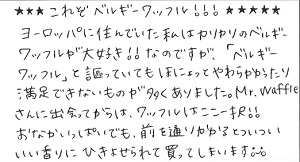 ★★★ これぞ ベルギーワッフル!!! ★★★★★
ヨーロッパに住んでいた私はカリカリのベルギー
ワッフルが大好き!! なのですが、「ベルギー
ワッフル」と謳っていてもぽにょっとやわらかかったり
満足できないものが多くありました。Mr. Waffle
さんに出会ってからは、ワッフルはここ一択!!
おなかいっぱいでも、前を通りかかるとついつい
いい香りにひきよせられて買ってしまいます